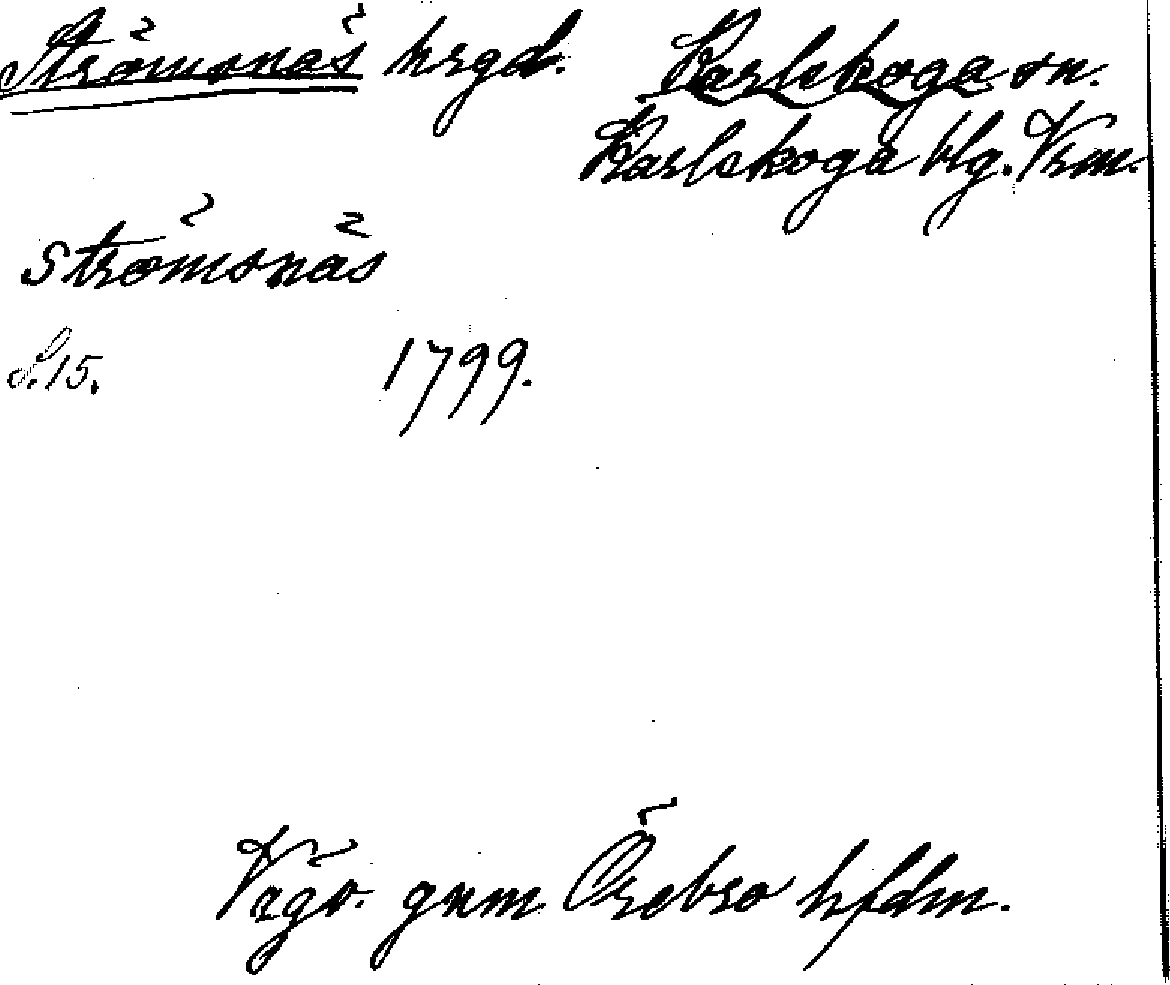 Strömsnäs hrgd. Karlskoga sn.
Karlskoga blg. Vrm.
Strömsnäs
S.15. 1799.
Vägv. gnm Örebro hfdm.